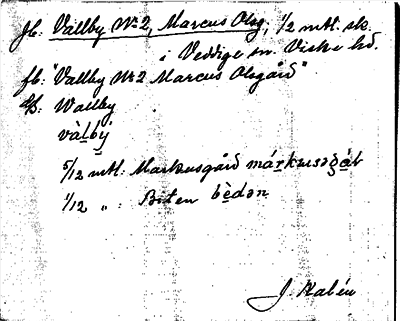 fb: Vallby Nr. 2, Marcus Olsg, 1/2 mtl. sk.
i Veddige sn. Viske hd.
fb: "Vallby Nr 2 Marcus Olsgård"
Wallby
vàlbý
5/12 mtl. Markusgård
1/12 " : Boten bèdən
J. Kalén